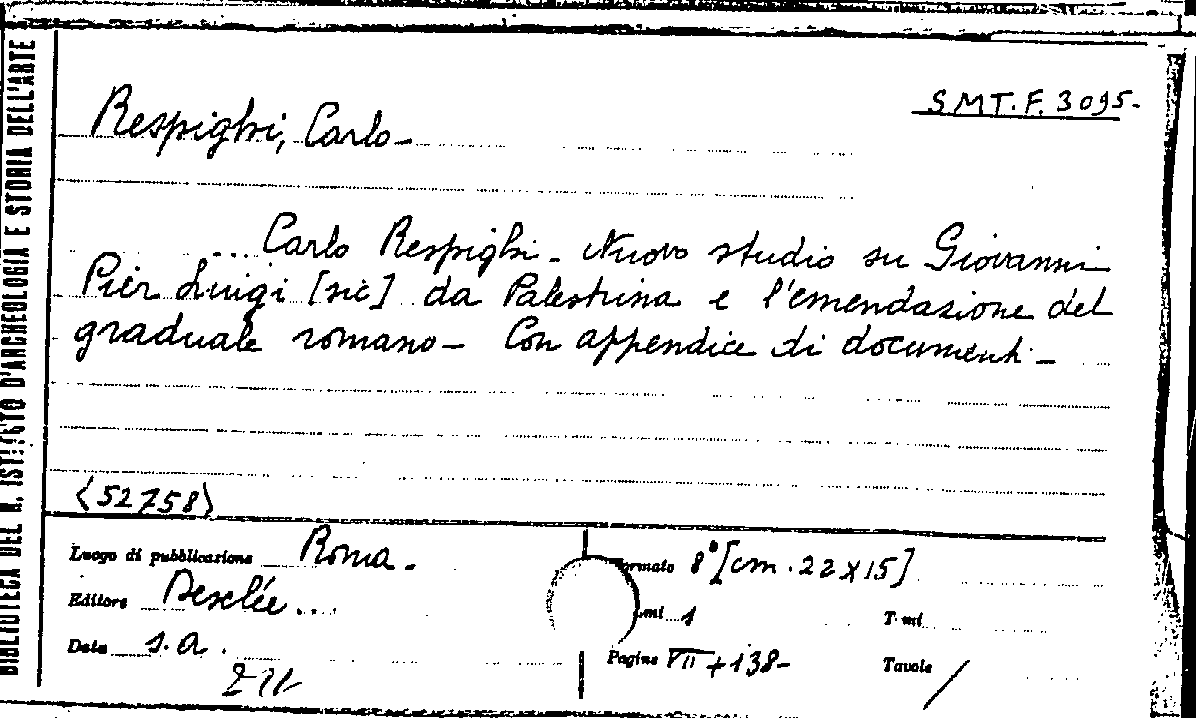 BIBLIOTECA DEL R. ISTITUTO D'ARCHEOLOGIA E STORIA DELL'ARTE
S.M.T.F. 3095-
Respighi, Carlo-
.... Carlo Respighi - Nuovo studio su Giovanni
Pier Luigi [sic] da Palestrina e l'emendazione del
graduale romano - Con appendice di documenti -
<52758>
Luogo di pubblicazione Roma.
Formato 8° [cm. 22x15]
Editore Desclée ...
mi 1
T-mi
Data s.a.
Pagine VII+138-
Tavole /